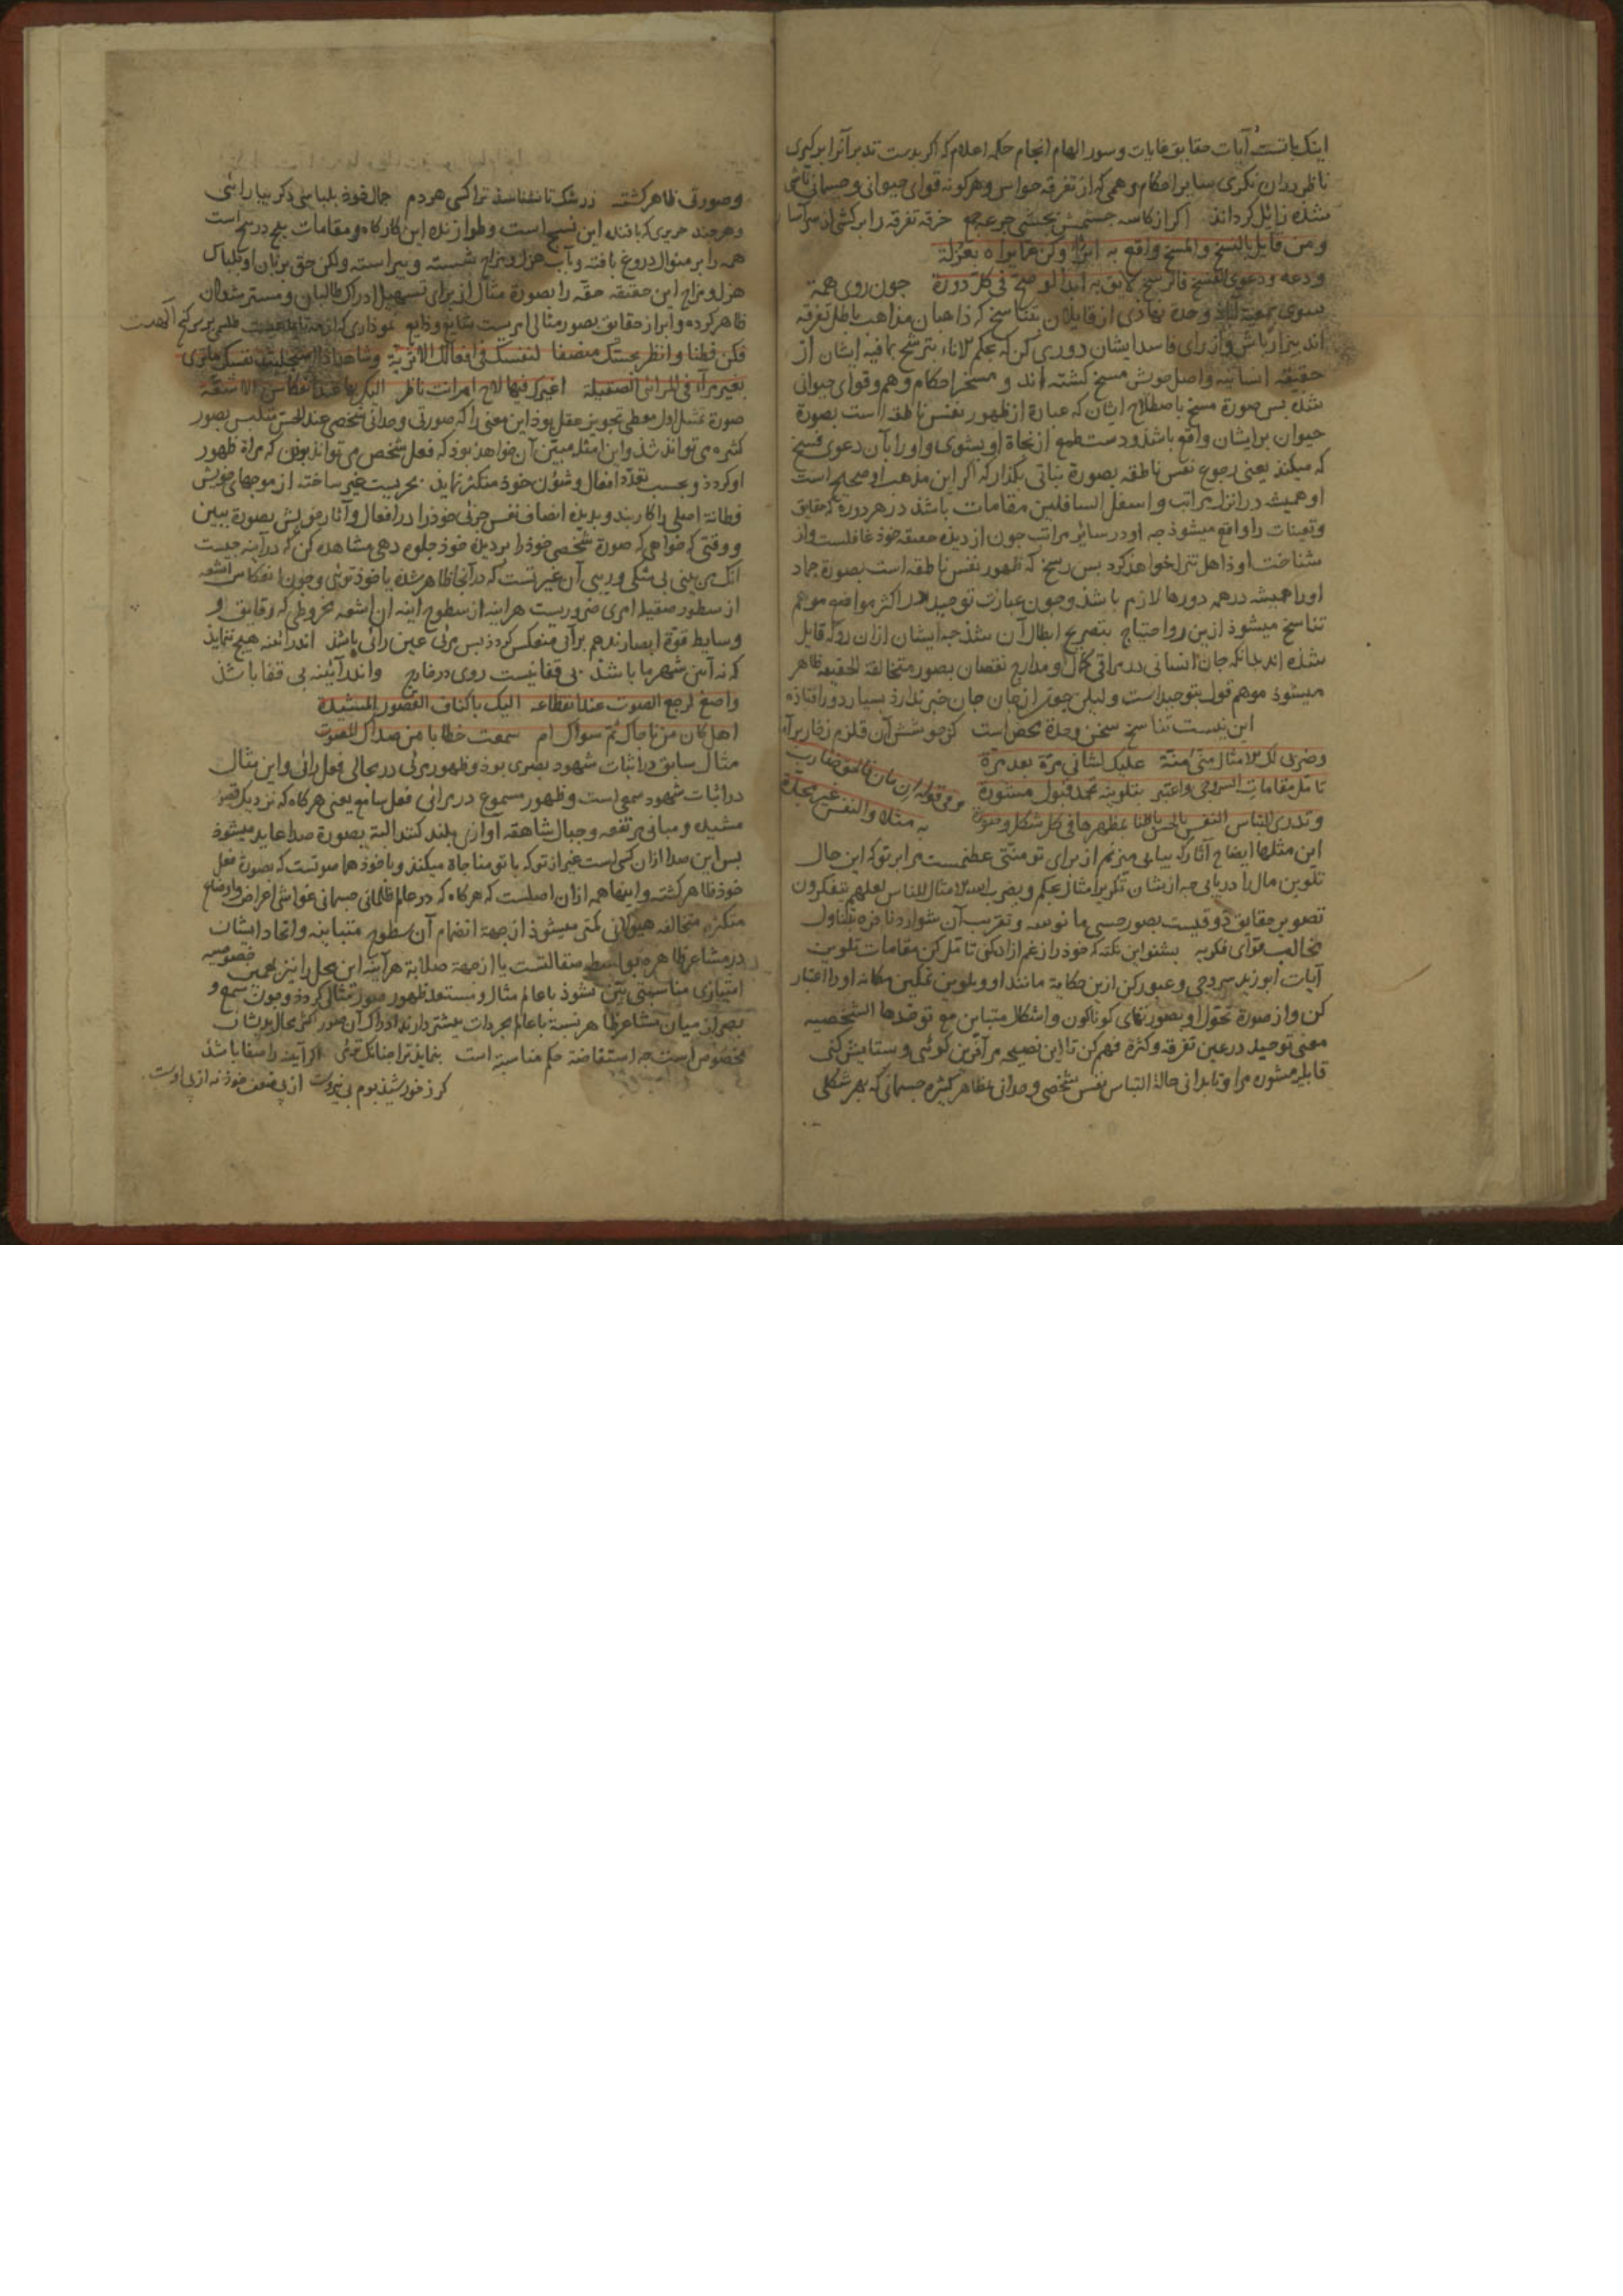 اینک باتست آیات حقایق غایات و سور الهام انجام حکمه اعلام که اگر بدست تدبر آنرا برگیری
ناظر دران نگری سایر احکام وهمی که از تفرقه حواس و هرگونه قوای حیوانی و جسمانی
شده زائل گرداند اگر از کاسه جرعه جمع خرقه تفرقه را برکشی از سر
ومن قایل بالنسخ والمسخ واقع به ابرأ وکن عما یراه بعزلة
ودعه ودعوی الفسخ فالرسخ لایق به ابدا لو صح فی کل دورة چون روی همة
بسوی وحدة از قایلان بتناسخ که ذاهبان مذاهب باطل تفرقه
اند بیزار باش و از رای فاسد ایشان دوری کن که بحکم الاناء یترشح بما فیه ایشان از
حقیقة انسانیه و اصل خویش مسخ گشته اند و مسخر احکام وهم و قوای حیوانی
شده بس صورة مسخ باصطلاح ایشان که عبارة از ظهور نفس ناطقه است بصورة
حیوان برایشان واقع باشد و دست طمع از نجاة او بشوی و او را بآن دعوی فسخ
که میکند یعنی رجوع نفس ناطقه بصورة نباتی بگذار که اگر این مذهب او صحیح است
او همیشه در انزل مراتب و اسفل السافلین مقامات باشد در هر دورة که حقایق
و تعینات را واقع میشود چه او در سائر مراتب چون از دیدن حقیقه خود غافلست و از
شناخت او ذاهل تنزل خواهد کرد بس رسخ که ظهور نفس ناطقه است بصورة جماد
او را همیشه در همه دورها لازم باشد و چون عبارت توحید در اکثر مواضع موهم
تناسخ میشود ازین رو احتیاج بتصریح ابطال آن شد چه ایشان ازان رو که قایل
شده اند بدانکه جان انسانی در مراقی کمال و مدارج نقصان بصور متخالفة الحقیقه ظاهر
میشود موهم قول بتوحید است ولیکن چون از جان جان خبر ندارد بسیار دور افتاده
این نیست تناسخ سخن وحدة محض است کز جوشش آن قلزم زخار برآمد
وضربی لک الامثال منی منة علیک بشانی مرة بعد مرة
تامل مقامات السروجی واعتبر بتلوینه تحمد قبول مشورة
وتدری التباس النفس بالحس باطنا بمظهرها فی کل شکل وصورة
وفی قوله ان مان فالحق ضارب به مثلا والنفس غیر مجدة
این مثلها ایضاح آثار که پیاپی میزنم از برای تو منتی عظیمست مرا بر تو که این حال
تلوین مال را دریابی چه ازیشان تکریر امثال بحکم ویضرب الله الامثال للناس لعلهم یتفکرون
تصویر حقایق ذوقیست بصور حسی مانوسه و تقریب آن شوارد نافره بتناول
مخالب قوای فکریه بشنو این نکته که خود را ز غم آزاده کنی تامل کن مقامات تلوین
آیات ابوزید سروجی و عبور کن ازین حکایة مانند او و بلوین تمکین مکانه او را اعتبار
کن و از صورة تحول او بصورتهای گوناگون و اشکال متباین مع توحدها الشخصیه
معنی توحید در عین تفرقه و کثرة فهم کن تا این نصیحه مرا آفرین گوئی و ستایش کنی
قابل مشورة مرا و تا بدانی حالة التباس نفس شخصی وحدانی بمظاهر کثیره جسمانی که بهر شکلی
وصورتی ظاهر گشته ز رشک تا نشناسد ترا کسی هر دم جمال خود بلباسی دگر بیارائی
و هرچند حریری که بافنده این نسیج است و طرازنده این کارگاه و مقامات
همه را بر منوال دروغ بافته و بآب هزل و مزاح شسته و پیراسته ولکن حق بزبان او بلباس
هزل و مزاح این حقیقه حقه را بصورة مثال از برای تسهیل ادراک طالبان و مسترشدان
ظاهر کرده و ابراز حقایق بصور مثالی امریست شایع و ذایع
فکن فطنا وانظر بحسک منصفا لنفسک فی افعالک الاثریة
وشاهد اذا استجلیت نفسک ما تری بغیر مراء فی المرائی الصقیلة
اغیرک فیها لاح ام انت ناظر الیک بها عند انعکاس الاشعة
صورة تمثیل اول معطی تجویز عقل بود این معنی را که صورتی وحدانی شخصی عند الحس متلبس بصور
کثیره می تواند شد و این امثله مبین آن خواهد بود که فعل شخص می تواند بودن که مراة ظهور
او گردد و بحسب تعدد افعال و شؤن خود متکثر نماید بحریست غیر ساخته از موجهای خویش
فطانة اصلی را کار بند و بدیده انصاف نفس جزئی خود را در افعال و آثار خویش بصورة ببین
و وقتی که خواهی که صورة شخصی خود را بر دیده خود جلوه دهی مشاهده کن که در آینه چیست
آنک می بینی بی شکی و ریبی آن غیر تست که در آنجا ظاهر شده یا خود توئی و چون انعکاس اشعه
از سطور صقیله امری ضروریست هراینه از سطوح اینه آن اشعه مخروطی که رقایق و
وسایط قوة ابصارند هم برائی منعکس گردد بس مرئی عین رائی باشد اندر آئنه هیچ ننماید
که نه آئین شهر ما باشد بی قفا نیست روی در خارج واندر آئینه بی قفا باشد
واصغ لرجع الصوت عند انقطاعه الیک باکناف القصور المشیدة
اهل کان من ناجاک ثم سواک ام سمعت خطابا من صداک المصوت
مثال سابق در اثبات شهود بصری بود و ظهور مرئی در مجالی فعل رائی و این مثال
در اثبات شهود سمعی است و ظهور مسموع در مرائی فعل سامع یعنی هرگاه که نزدیک قصور
مشیده و مبانی مرتفعه و جبال شاهقه آوازی بلند کنند البته بصورة صدا عاید میشود
بس این صدا ازان کی است غیر از تو که با تو مناجاة میکند و یا خود هم صوتست که بصورة فعل
خود ظاهر گشته و اینها همه ازان اصلست که هرگاه که در عالم ظلمانی جسمانی غواشی اعراض و اوضاع
متکثره متخالفه هیولانی کمتر میشود از جهة انضمام آن سطوح متباینه و اتحاد ایشان
در مشاعر ظاهره بواسطه صقالتست یا از جهة صلابة هرآینه این محل را نیز بحسب خصوصیه
امتیازی مناسبتی بین شود با عالم مثال و مستعد ظهور صور مثالی گردد و چون سمع و
بصر از میان مشاعر ظاهر نسبة با عالم مجردات بیشتر دارند ادراک آن صور اکثر بحال ایشان
مخصوص است چه استفاضة حکم مناسبة است بنماید ترا چنانک توئی اگر آینه را صفا باشد
گر ز خورشید بوم بی نیروست از پی ضعف خود نه از پی اوست